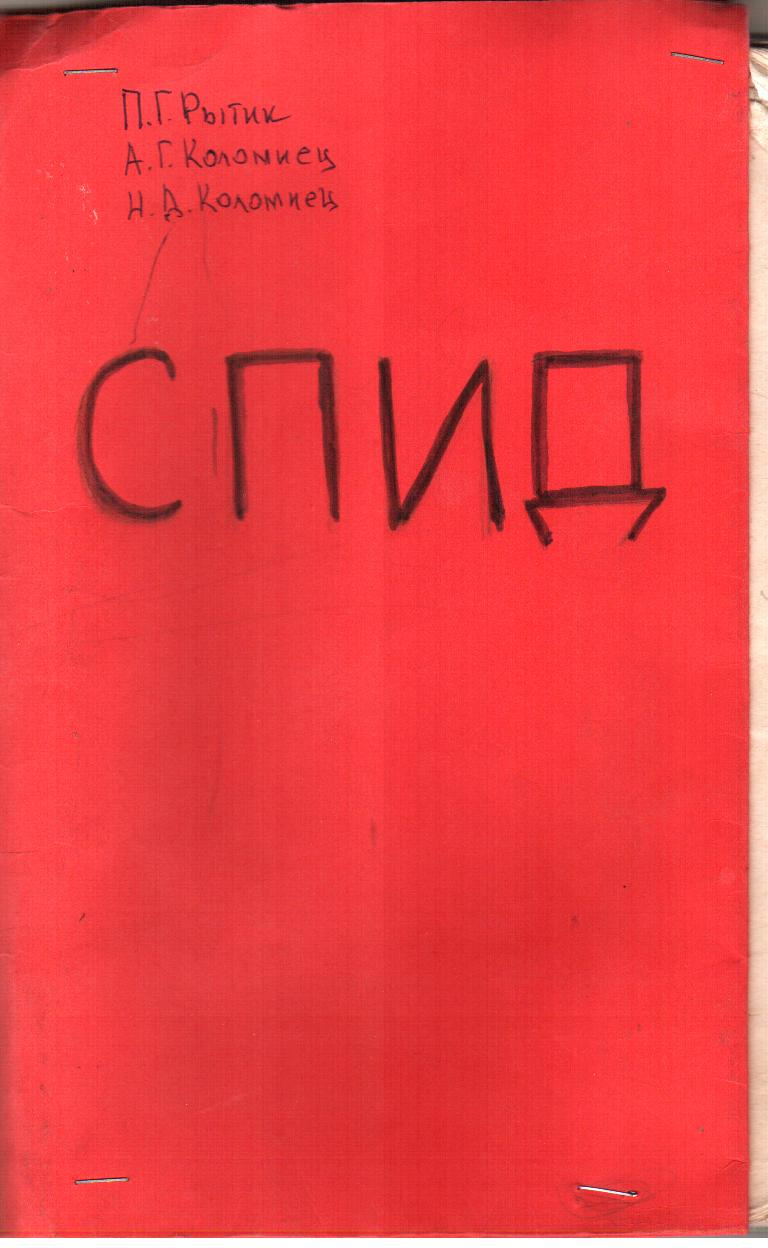 П.Г. Рытик
А.Г. Коломиец
Н.Д. Коломиец
СПИД